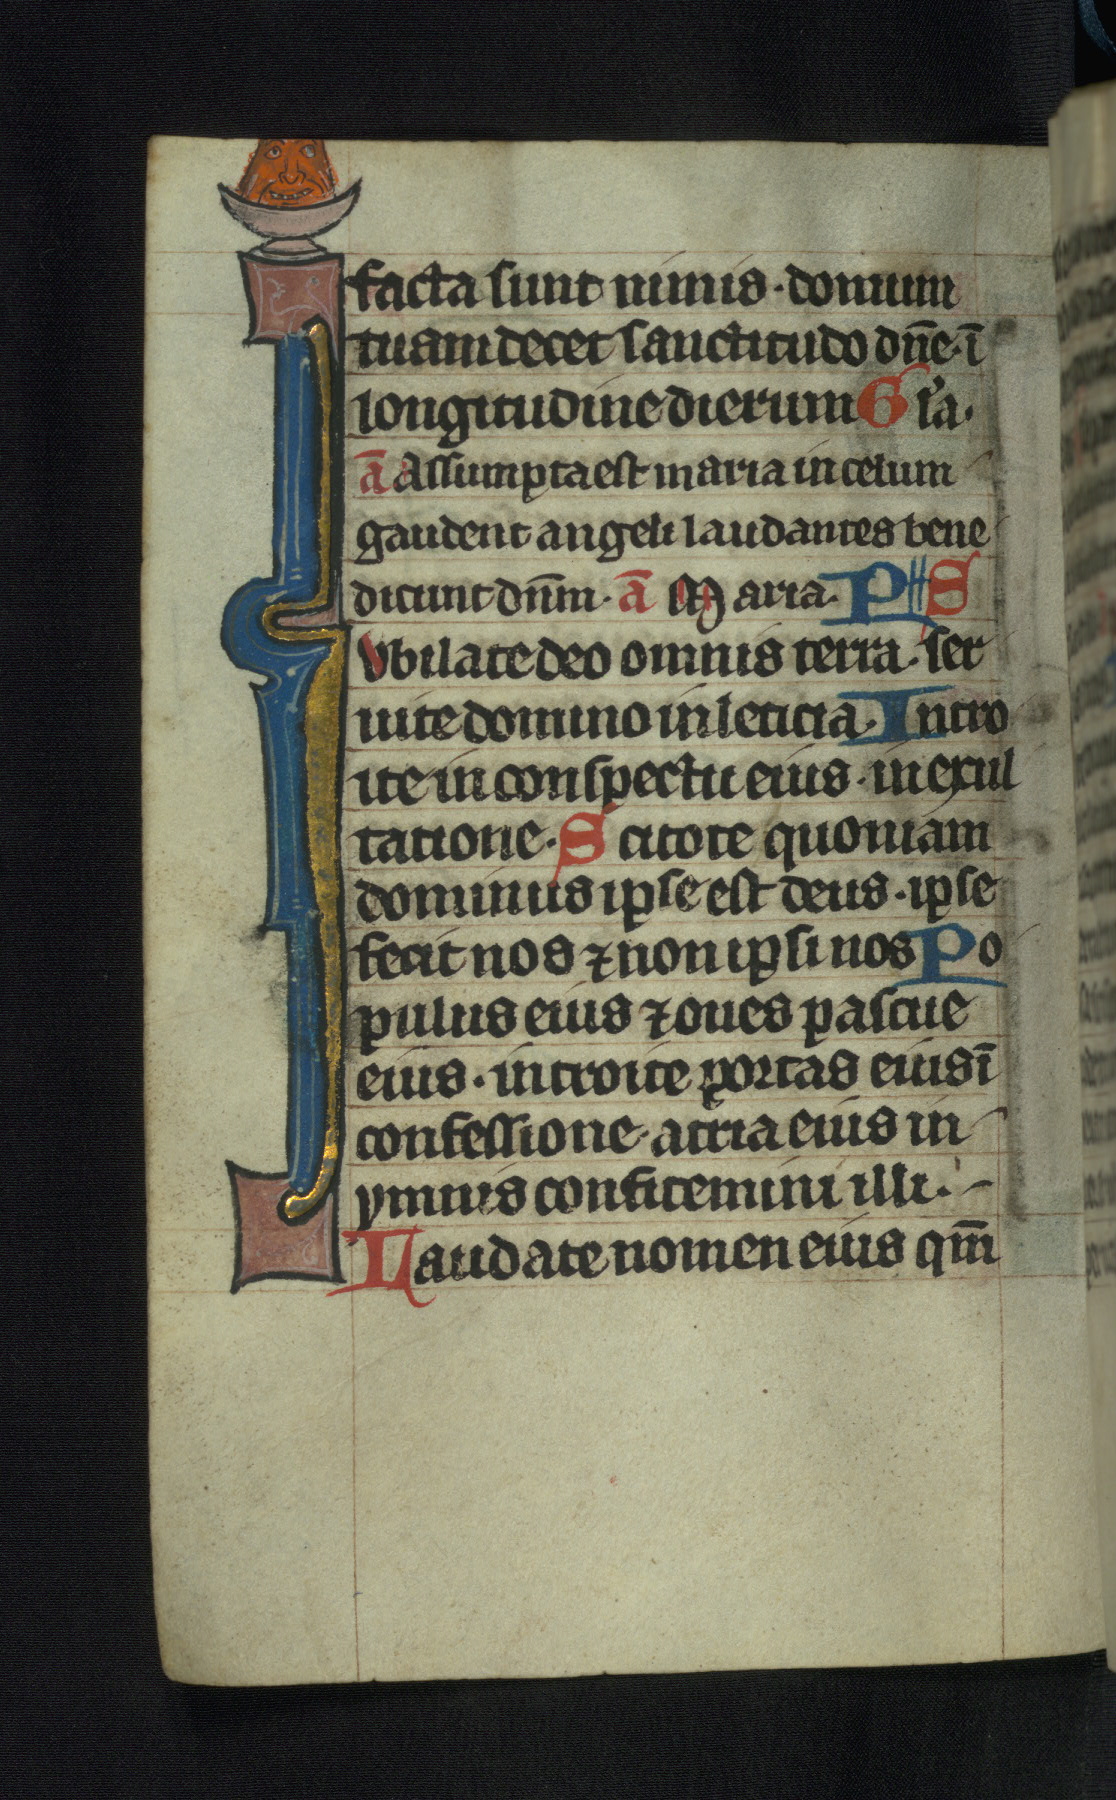 facta sunt nimis · domum
tuam decet sanctitudo dn̄e · ī
longitudine dierum Gl'a ·
ā Assumpta est maria in celum
gaudent angeli laudantes bene
dicunt dn̄m · ā Maria · PS
Iubilate deo omnis terra · ser
uite domino in leticia · Intro
ite in conspectu eius · in exul
tatione · Scitote quoniam
dominus ipse est deus · ipse
fecit nos ⁊ non ipsi nos Po
pulus eius ⁊ oues pascue
eius · introite portas eius ī
confessione · atria eius in
ymnis confitemini illi · -
Laudate nomen eius qm̄